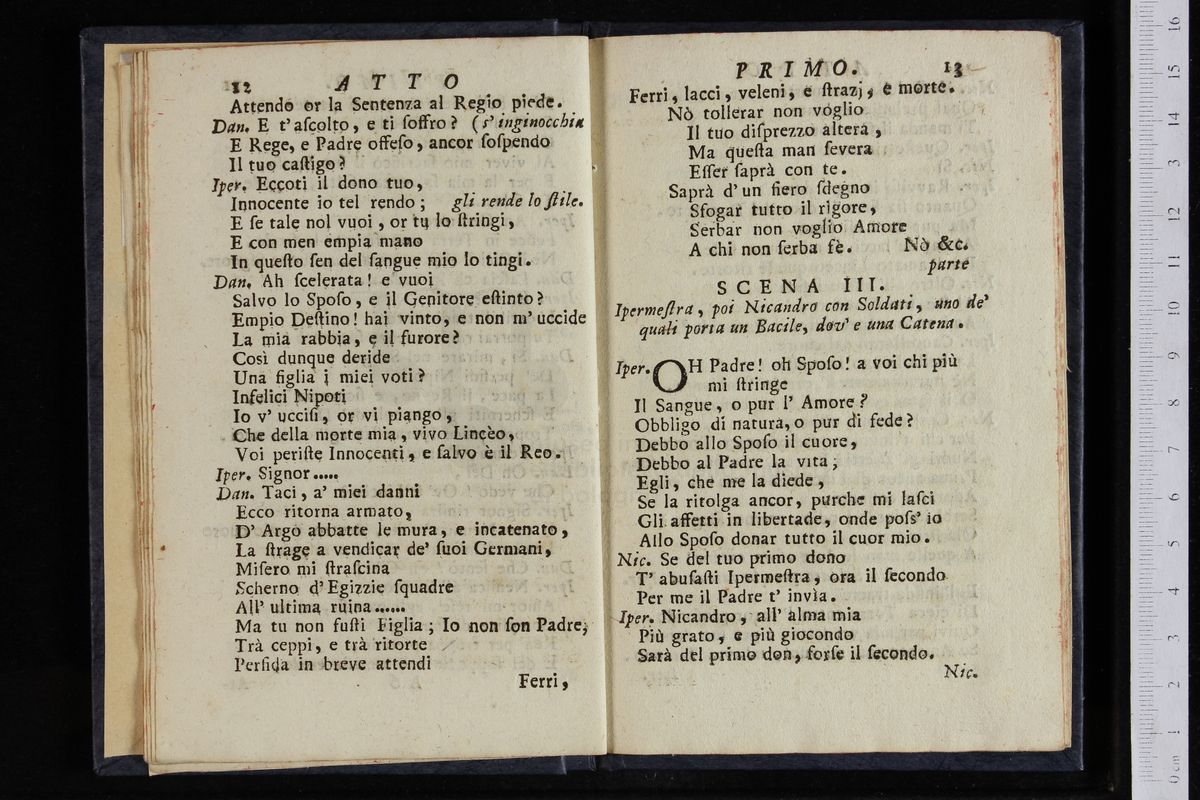 12 ATTO
Attendo or la Sentenza al Regio piede.
Dan. E t'aſcolto, e ti ſoffro? (s'inginocchia
E Rege, e Padre offeſo, ancor ſoſpendo
Il tuo caſtigo?
Iper. Eccoti il dono tuo,
Innocente io tel rendo; gli rende lo ſtile.
E ſe tale nol vuoi, or tu lo ſtringi,
E con men empia mano
In queſto ſen del ſangue mio lo tingi.
Dan. Ah ſcelerata! e vuoi
Salvo lo Spoſo, e il Genitore eſtinto?
Empio Deſtino! hai vinto, e non m'uccide
La mia rabbia, e il furore?
Così dunque deride
Una figlia i miei voti?
Infelici Nipoti
Io v'ucciſi, or vi piango,
Che della morte mia, vivo Lincèo,
Voi periſte Innocenti, e ſalvo è il Reo.
Iper. Signor.....
Dan. Taci, a' miei danni
Ecco ritorna armato,
D'Argo abbatte le mura, e incatenato,
La ſtrage a vendicar de' ſuoi Germani,
Miſero mi ſtraſcina
Scherno d'Egizzie ſquadre
All'ultima ruina......
Ma tu non fuſti Figlia; Io non ſon Padre;
Trà ceppi, e trà ritorte
Perfida in breve attendi
Ferri,
PRIMO. 13
Ferri, lacci, veleni, e ſtrazj, e morte.
Nò tollerar non voglio
Il tuo diſprezzo altera,
Ma queſta man ſevera
Eſſer ſaprà con te.
Saprà d'un fiero ſdegno
Sfogar tutto il rigore,
Serbar non voglio Amore
A chi non ſerba fè. Nò &c.
parte
SCENA III.
Ipermeſtra, poi Nicandro con Soldati, uno de'
quali porta un Bacile, dov' e una Catena.
Iper. OH Padre! oh Spoſo! a voi chi più
mi ſtringe
Il Sangue, o pur l'Amore?
Obbligo di natura, o pur di fede?
Debbo allo Spoſo il cuore,
Debbo al Padre la vita;
Egli, che me la diede,
Se la ritolga ancor, purche mi laſci
Gli affetti in libertade, onde poſs'io
Allo Spoſo donar tutto il cuor mio.
Nic. Se del tuo primo dono
T'abuſaſti Ipermeſtra, ora il ſecondo
Per me il Padre t'invìa.
Iper. Nicandro, all'alma mia
Più grato, e più giocondo
Sarà del primo don, forſe il ſecondo.
Nic.
16
15
14
13
12
11
10
9
8
7
6
5
4
3
2
1
0 cm